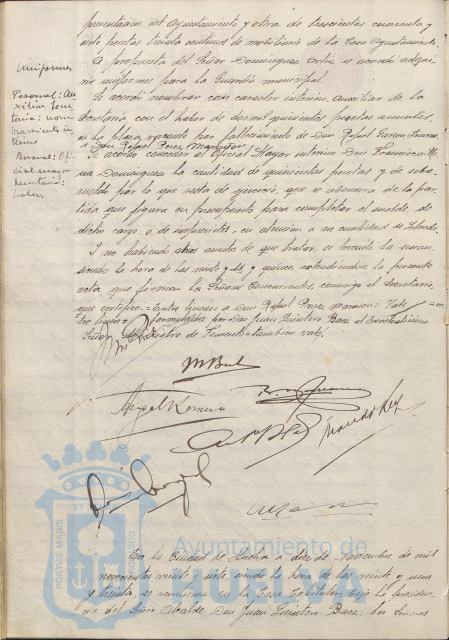 presentacion del Ayuntamiento y otra de trescientas cuarenta y
siete pesetas treinta centimos de mobiliario de la Casa Ayuntamiento.
Uniformes
A propuesta del Señor Dominguez Ortiz se acordó adqui-
rir uniformes para la Guardia municipal.
Personal: Au-
xiliar
nom-
bramiento in-
terino
Se acordó nombrar con caracter interino, Auxiliar de la
con el haber de dos mil quinientas pesetas anuales,
en la plaza vacante por fallecimiento de Don Rafael Garcia
a Don Rafael Perez Marmolejo
Personal: Ofi-
cial mayor
haber
Se acordó conceder al Oficial Mayor interino Don Francisco
Dominguez la cantidad de quinientas pesetas y de sobre-
sueldo por lo que resta de ejercicio, que se abonará de la par-
tida que figura en presupuesto para completar el sueldo de
dicho cargo, o de imprevistos, en atencion a su cualidad de Letrado.
Y no habiendo otros asuntos de que tratar, se levantó la sesion,
siendo la hora de las y quince extendiendose la presente
acta que firman los Señores Concurrentes, conmigo el Secretario
que certifico. = Entre lineas = a Don Rafael Perez = Vale = en-
tre lineas = formuladas por Don Juan Quintero Baez al Excelentisimo
Señor Ministro de Fomento = tambien vale.
Angel Romero
PORTUS MARIS
Ayuntamiento de
En la Ciudad de Huelva a diez de Noviembre de mil
novecientos veinte y siete, siendo la hora de las veinte y una
y treinta, se reunieron en la Casa Capitular, bajo la presiden-
cia del Señor Alcalde Don Juan Quintero Baez, los Señores